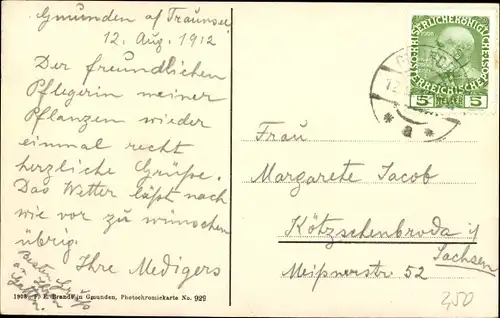 Gmunden a/ Traunsee
12. Aug. 1912
Der freundlichen
Pflegerin meiner
Pflanzen wieder
einmal recht
herzliche Grüße.
Das Wetter läßt nach
wie vor zu wünschen
übrig.
Ihre Medigers
Besten Gruß
Ihrem
Gatten.
1908 F. E. Brandt in Gmunden, Photochromiekarte No. 929
KAISERLICHE KÖNIGLICHE
ÖSTERREICHISCHE POST
5 HELLER 5
* a *
Frau
Margarete Jacob
Kötzschenbroda i/
Sachsen
Meißnerstr 52
2,50